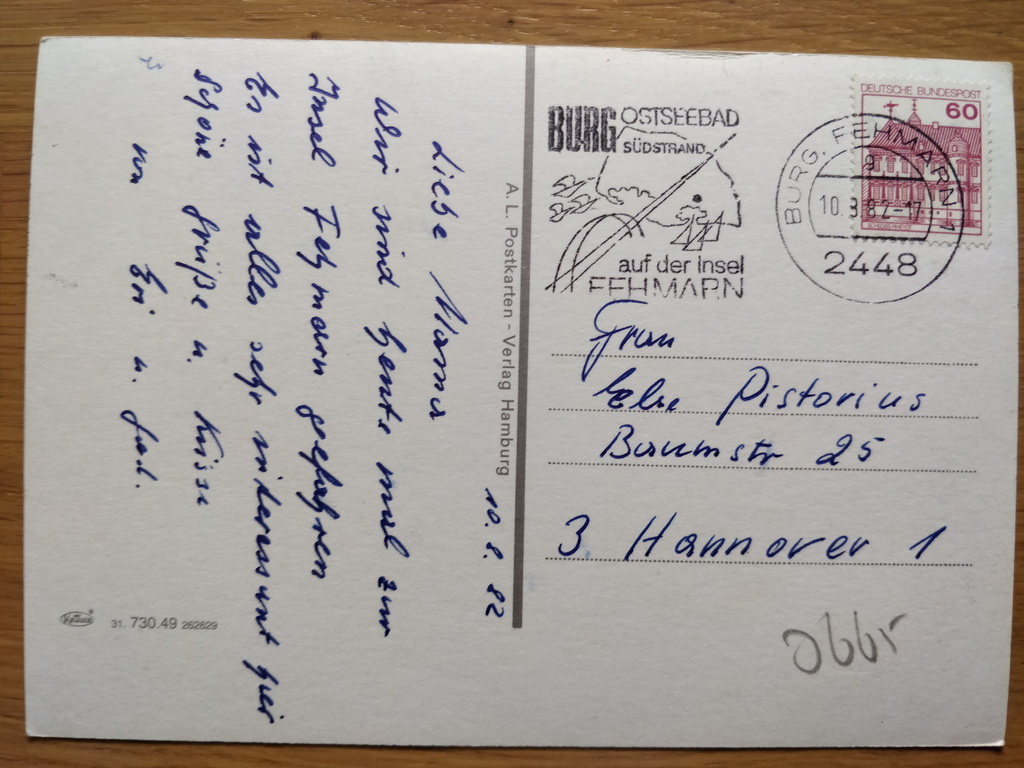 10. 8. 82
Liebe Mama
Wir sind heute mal zur
Insel Fehmarn gefahren
Es ist alles sehr interessant hier
Schöne Grüße u. Küsse
von Evi u.
A. L. Postkarten - Verlag Hamburg
31. 730.49 262629
BURG OSTSEEBAD
SÜDSTRAND
auf der Insel
FEHMARN
DEUTSCHE BUNDESPOST
60
BURG, FEHMARN 1
10. 8. 82-17
2448
Frau
Else Pistorius
Baumstr 25
3 Hannover 1